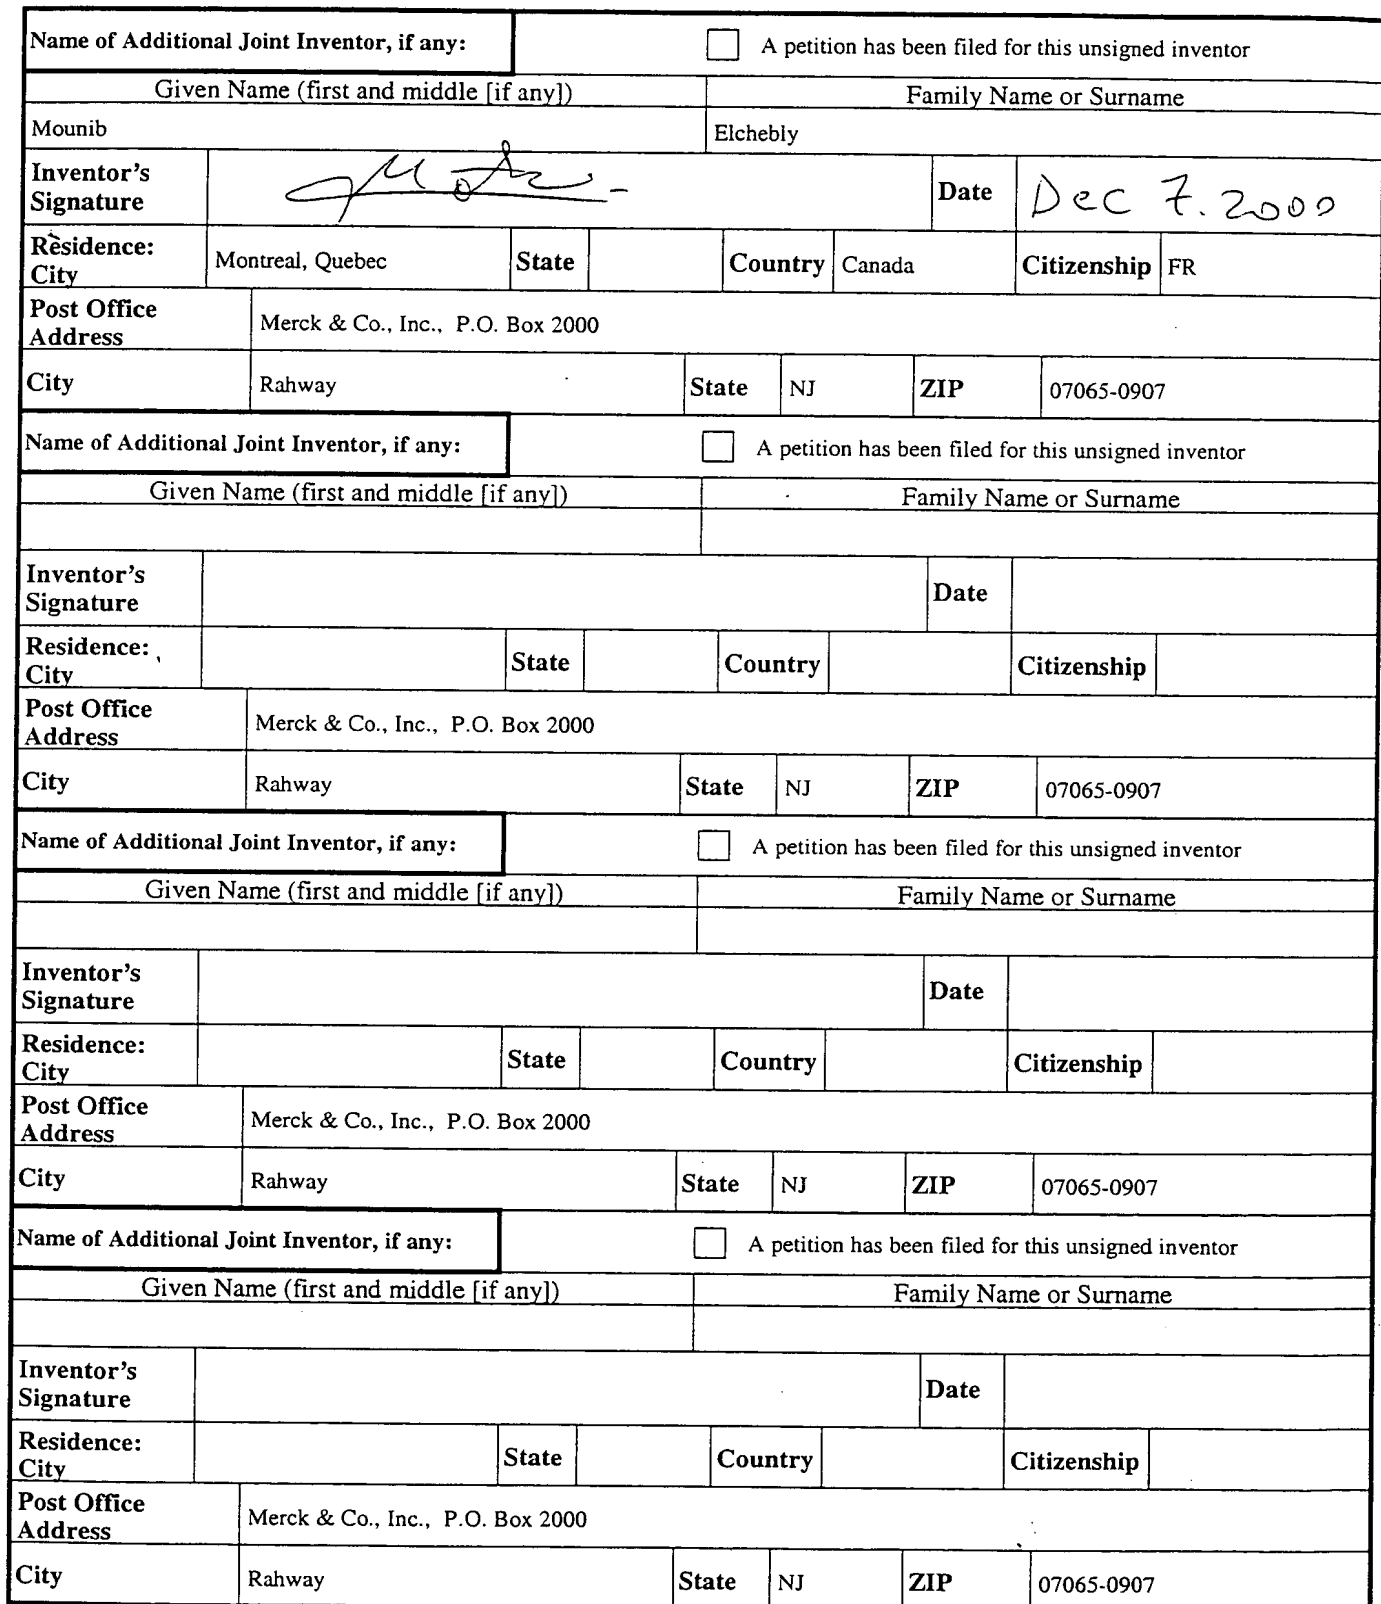 Name of Additional Joint Inventor, if any: A petition has been filed for this unsigned inventor
Given Name (first and middle [if any]) Family Name or Surname
Mounib Elchebly
Inventor's Signature Date Dec 7. 2000
Residence: City Montreal, Quebec State Country Canada Citizenship FR
Post Office Address Merck & Co., Inc., P.O. Box 2000
City Rahway State NJ ZIP 07065-0907
Name of Additional Joint Inventor, if any: A petition has been filed for this unsigned inventor
Given Name (first and middle [if any]) Family Name or Surname
Inventor's Signature Date
Residence: City State Country Citizenship
Post Office Address Merck & Co., Inc., P.O. Box 2000
City Rahway State NJ ZIP 07065-0907
Name of Additional Joint Inventor, if any: A petition has been filed for this unsigned inventor
Given Name (first and middle [if any]) Family Name or Surname
Inventor's Signature Date
Residence: City State Country Citizenship
Post Office Address Merck & Co., Inc., P.O. Box 2000
City Rahway State NJ ZIP 07065-0907
Name of Additional Joint Inventor, if any: A petition has been filed for this unsigned inventor
Given Name (first and middle [if any]) Family Name or Surname
Inventor's Signature Date
Residence: City State Country Citizenship
Post Office Address Merck & Co., Inc., P.O. Box 2000
City Rahway State NJ ZIP 07065-0907